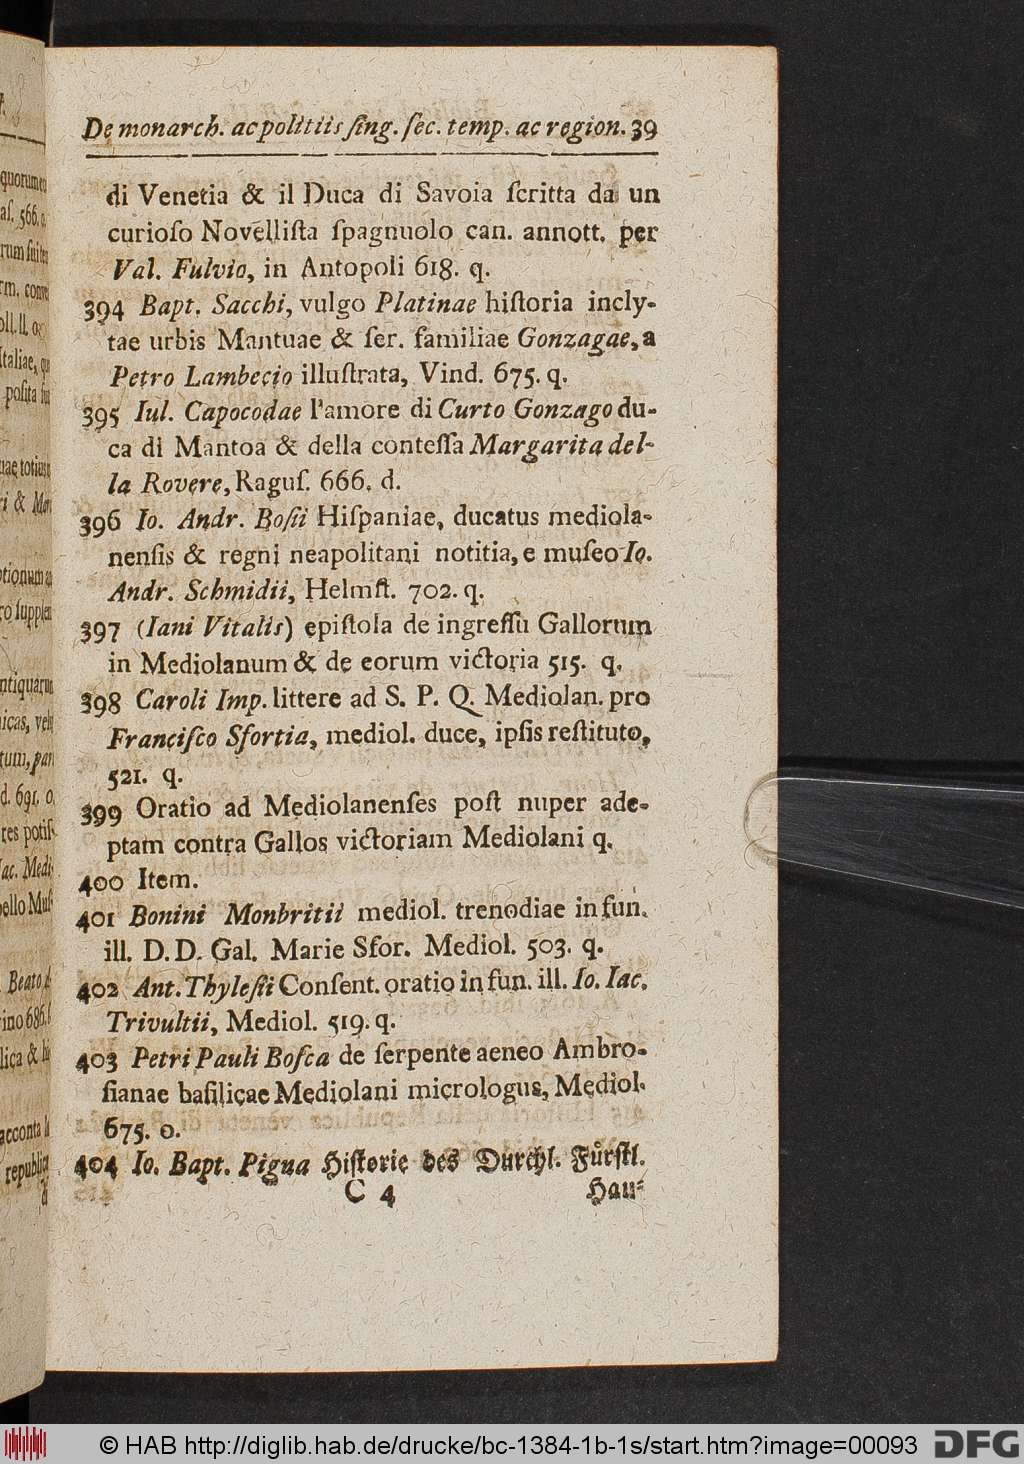 De monarch. ac politiis ſing. ſec. temp. ac region. 39
di Venetia & il Duca di Savoia ſcritta da un
curioſo Novelliſta ſpagnuolo can. annott. per
Val. Fulvio, in Antopoli 618. q.
394 Bapt. Sacchi, vulgo Platinae hiſtoria incly-
tae urbis Mantuae & ſer. familiae Gonzagae, a
Petro Lambecio illuſtrata, Vind. 675. q.
395 Iul. Capocodae l'amore di Curto Gonzago du-
ca di Mantoa & della conteſſa Margarita del-
la Rovere, Raguſ. 666. d.
396 Io. Andr. Boſii Hiſpaniae, ducatus mediola-
nenſis & regni neapolitani notitia, e muſeo Io.
Andr. Schmidii, Helmſt. 702. q.
397 (Iani Vitalis) epiſtola de ingreſſu Gallorum
in Mediolanum & de eorum victoria 515. q.
398 Caroli Imp. littere ad S. P. Q. Mediolan. pro
Franciſco Sfortia, mediol. duce, ipſis reſtituto,
521. q.
399 Oratio ad Mediolanenſes poſt nuper ade-
ptam contra Gallos victoriam Mediolani q.
400 Item.
401 Bonini Monbritii mediol. trenodiae in fun.
ill. D. D. Gal. Marie Sfor. Mediol. 503. q.
402 Ant. Thyleſii Conſent. oratio in fun. ill. Io. Iac.
Trivultii, Mediol. 519. q.
403 Petri Pauli Boſca de ſerpente aeneo Ambro-
ſianae baſilicae Mediolani micrologus, Mediol.
675. o.
404 Io. Bapt. Pigna Hiſtorie des Durchl. Fürſtl.
C 4 Hau-
© HAB http://diglib.hab.de/drucke/bc-1384-1b-1s/start.htm?image=00093 DFG